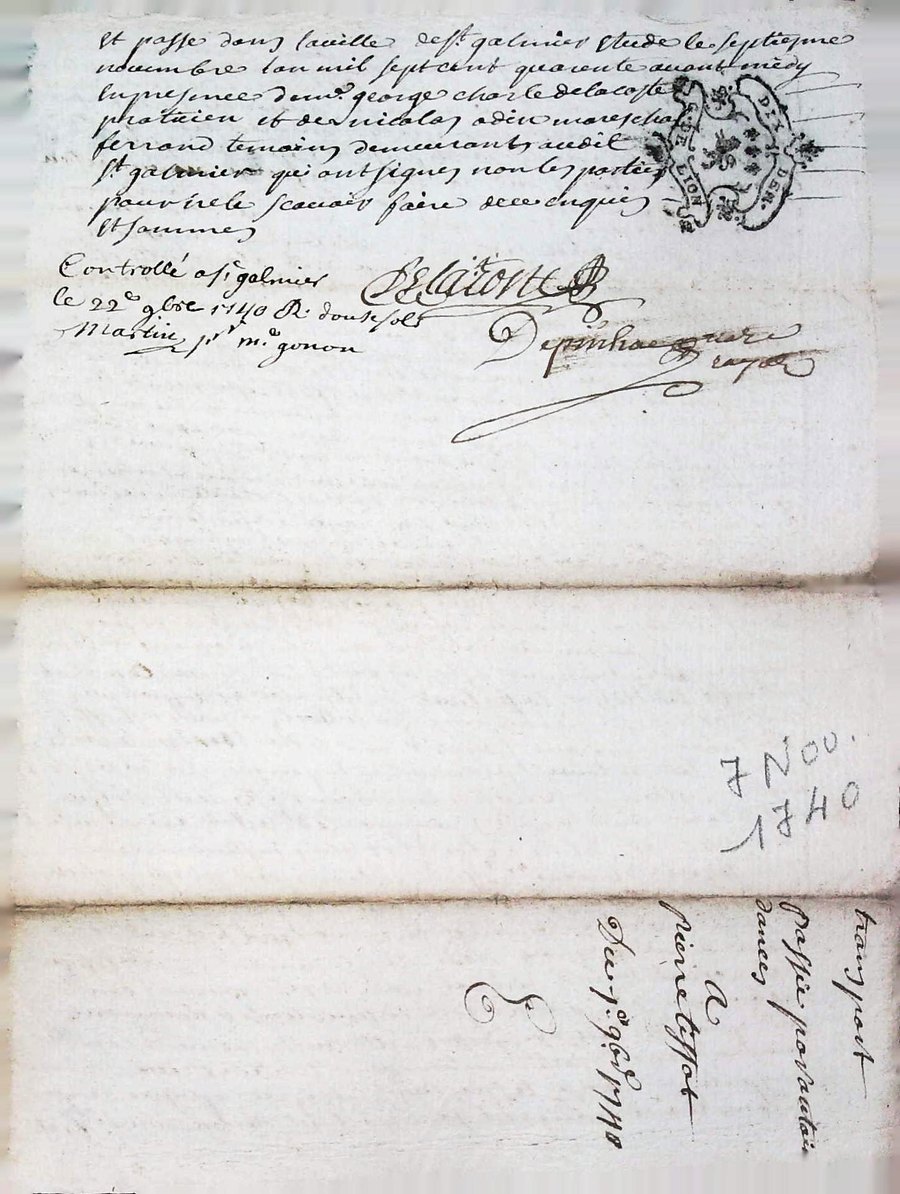 et passé dans la ville de st galmier etude le septiesme
novembre lan mil sept cent quarente avant midy
en presence de mr. george charle delacoste
praticien et de nicolas odin mareschal
ferrand temoins demeurants audit
st galmier qui ont signes non les parties
pour ne le scavoir faire de ce enquis
et sommes
GE. DE LION
DIX DEN.
Controllé a st galmier
le 22e 9bre 1740 R. douse sols
Martin pr mr gonon
Delacoste
7 Nov.
1740
transport
passée par
dances
A
pierre tissot
Du 7e 9bre 1740